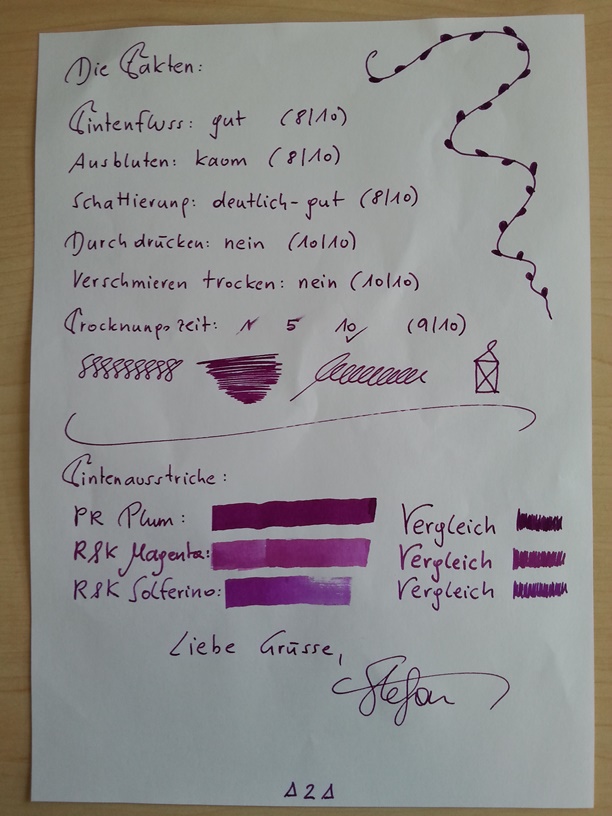 Die Fakten:
Tintenfluss: gut (8/10)
Ausbluten: kaum (8/10)
Schattierung: deutlich-gut (8/10)
Durchdrücken: nein (10/10)
Verschmieren trocken: nein (10/10)
Trocknungszeit: 1 5 10 ✓ (9/10)
Tintenausstriche:
PR Plum: Vergleich
R&K Magenta: Vergleich
R&K Solferino: Vergleich
Liebe Grüsse,
Stefan
Δ2Δ